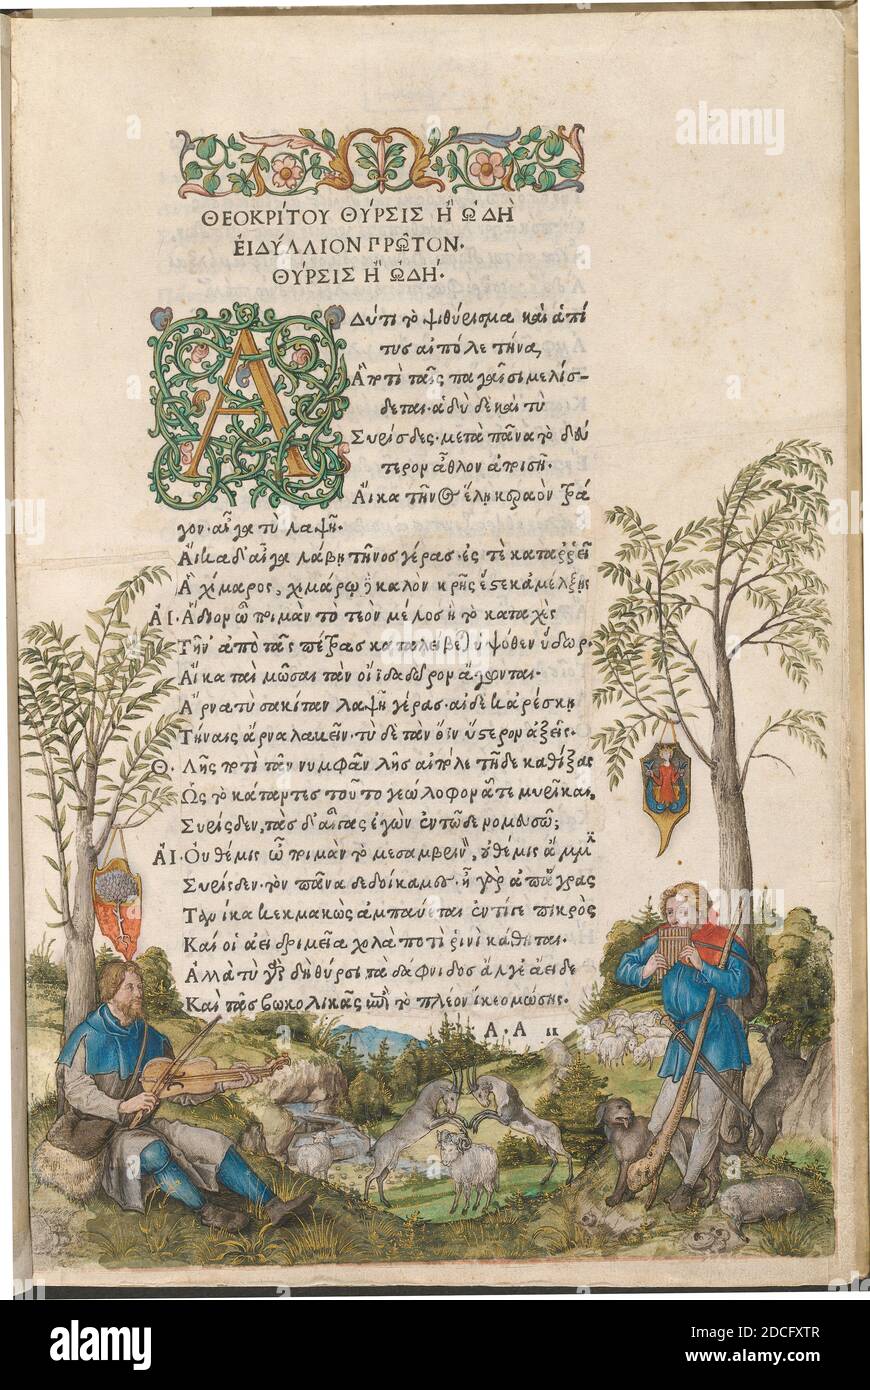 ΘΕΟΚΡΊΤΟΥ ΘΎΡΣΙΣ Ἢ ὨΔῊ
ἘΙΔΎΛΛΙΟΝ ΠΡΩ͂ΤΟΝ.
ΘΎΡΣΙΣ Ἢ ὨΔΉ.
ΑΔύ τι τὸ ψιθύρισμα καὶ ἁ πί
τυς αἰπόλε τήνα,
Ἃ ποτὶ ταῖς παγαῖσι μελίσ-
δεται. ἁδὺ δὲ καὶ τὺ
Συρίσδες. μετὰ πᾶνα τὸ δεύ
τερον ἆθλον ἀποισῇ.
Αἴκα τῆνος ἕλῃ κεραὸν τρά
γον. αἶγα τὺ λαψῇ.
Αἴκα δ' αἶγα λάβῃ τῆνος γέρας. ἐς τὲ καταῤῥεῖ
Ἁ χίμαρος, χιμάρῳ δὲ καλὸν κρῆς ἔστε κ' ἀμέλξῃς
ΑΙ. Ἅδιον ὦ ποιμὰν τὸ τεὸν μέλος ἢ τὸ καταχὲς
Τῆν' ἀπὸ τᾶς πέτρας καταλείβεται ὑψόθεν ὕδωρ.
Αἴκα ταὶ μῶσαι τὰν οἴιδα δῶρον ἄγωνται.
Ἄρνα τὺ σακίταν λαψῇ γέρας. αἰ δέ κ' ἀρέσκῃ
Τήναις ἄρνα λαβεῖν. τὺ δὲ τὰν ὄϊν ὕστερον ἀξεῖς.
Θ. Λῇς ποτὶ τᾶν νυμφᾶν λῇς αἰπόλε τῇδε καθίξας
Ὡς τὸ κάταντες τοῦτο γεώλοφον ἅτε μυρῖκαι,
Συρίσδεν, τὰς δ' αἶγας ἐγὼν ἐν τῷδε νομευσῶ;
ΑΙ. Οὐ θέμις ὦ ποιμὰν τὸ μεσαμβρινὸν, οὐ θέμις ἄμμιν
Συρίσδεν. τὸν πᾶνα δεδοίκαμες. ἦ γὰρ ἀπ' ἄγρας
Τανίκα κεκμακὼς ἀμπαύεται ἐντὶ γε πικρὸς
Καί οἱ ἀεὶ δριμεῖα χολὰ ποτὶ ῥινὶ κάθηται.
Ἀλλὰ τὺ γὰρ δὴ θύρσι τὰ δάφνιδος ἄλγε' ἄειδε
Καὶ τᾶς βωκολικᾶς ἐπὶ τὸ πλέον ἵκεο μώσης.
Α.Α ιι
alamy
alamy
Image ID: 2DCFXTR
www.alamy.com